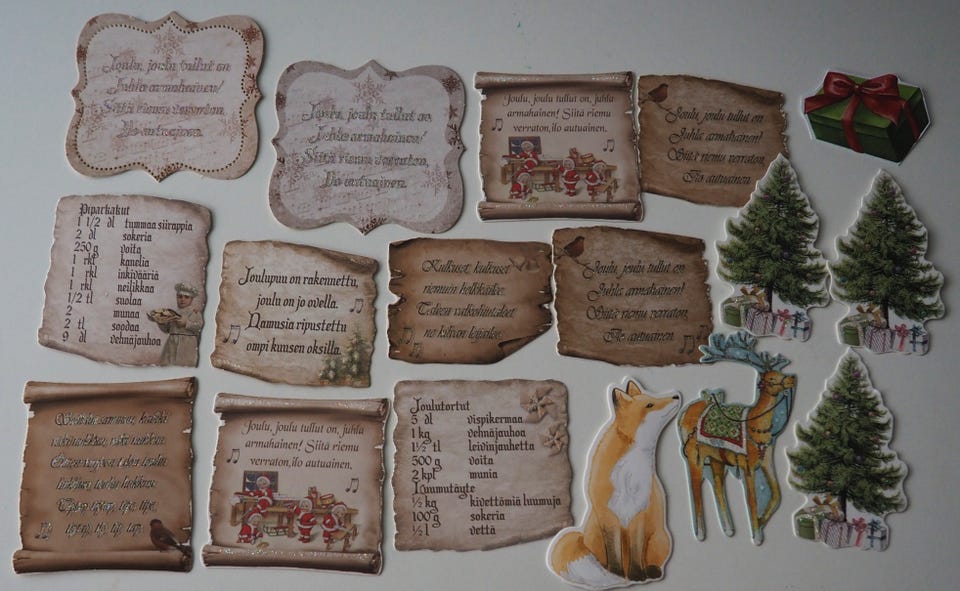 Joulu, joulu tullut on
Juhla armahainen!
Siitä riemu verraton,
Ilo autuainen.
Joulu, joulu tullut on
Juhla armahainen!
Siitä riemu verraton,
Ilo autuainen.
Joulu, joulu tullut on, juhla
armahainen! Siitä riemu
verraton,ilo autuainen,
Joulu, joulu tullut on
Juhla armahainen!
Siitä riemu verraton,
Ilo autuainen
Piparkakut
1 1/2 dl tummaa siirappia
2 dl sokeria
250 g voita
1 rkl kanelia
1 rkl inkivääriä
1 rkl neilikkaa
1/2 tl suolaa
2 munaa
2 tl soodaa
9 dl vehnäjauhoa
Joulupuu on rakennettu,
joulu on jo ovella.
Namusia ripustettu
ompi kuusen oksilla.
Kulkuset, kulkuset
riemuin helkkäilee.
Talven valkohiutaleet
ne kilvan leijailee.
Joulu, joulu tullut on
Juhla armahainen!
Siitä riemu verraton,
Ilo autuainen
tip, tap
Joulu, joulu tullut on, juhla
armahainen! Siitä riemu
verraton,ilo autuainen,
Joulutortut
5 dl vispikermaa
1 kg vehnäjauhoa
1½ tl leivinjauhetta
500 g voita
2 kpl munia
Luumutäyte
½ kg kivettömiä luumuja
100 g sokeria
½ l vettä